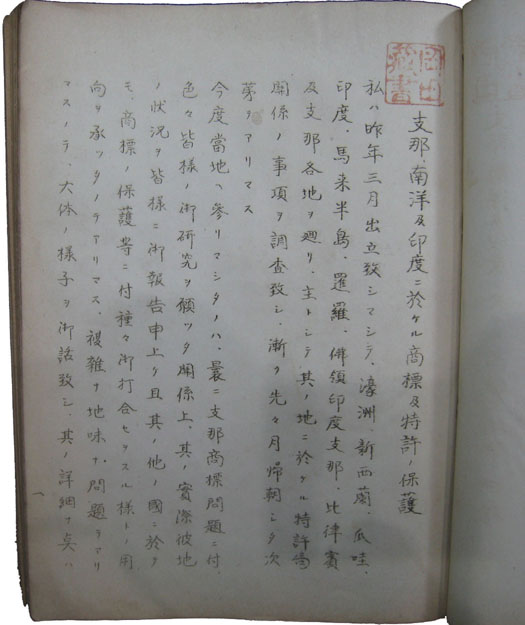 岡田蔵書
支那、南洋及印度ニ於ケル商標及特許ノ保護
私ハ昨年三月出立致シマシテ、濠洲、新西蘭、瓜哇、
印度、馬来半島、暹羅、佛領印度支那、比律賓
及支那各地ヲ廻リ、主トシテ其ノ地ニ於ケル特許商標
関係ノ事項ヲ調査致シ、漸ク先々月帰朝シタ次
第デアリマス
今度當地ヘ参リマシタノハ、曩ニ支那商標問題ニ付、
色々皆様ノ御研究ヲ願ツタ関係上、其ノ實際彼地
ノ状況ヲ皆様ニ御報告申上ケ且其ノ他ノ國ニ於テ
モ、商標ノ保護等ニ付種々御打合セヲスル様トノ用
向ヲ承ツタノデアリマス、複雑ナ地味ナ問題デアリ
マスノデ、大体ノ様子ヲ御話致シ、其ノ詳細ナ点ハ
一